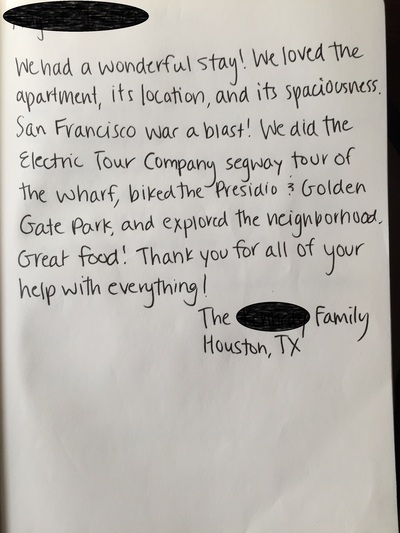 We had a wonderful stay! We loved the
apartment, its location, and its spaciousness.
San Francisco was a blast! We did the
Electric Tour Company segway tour of
the wharf, biked the Presidio & Golden
Gate Park, and explored the neighborhood.
Great food! Thank you for all of your
help with everything!
The Family
Houston, TX